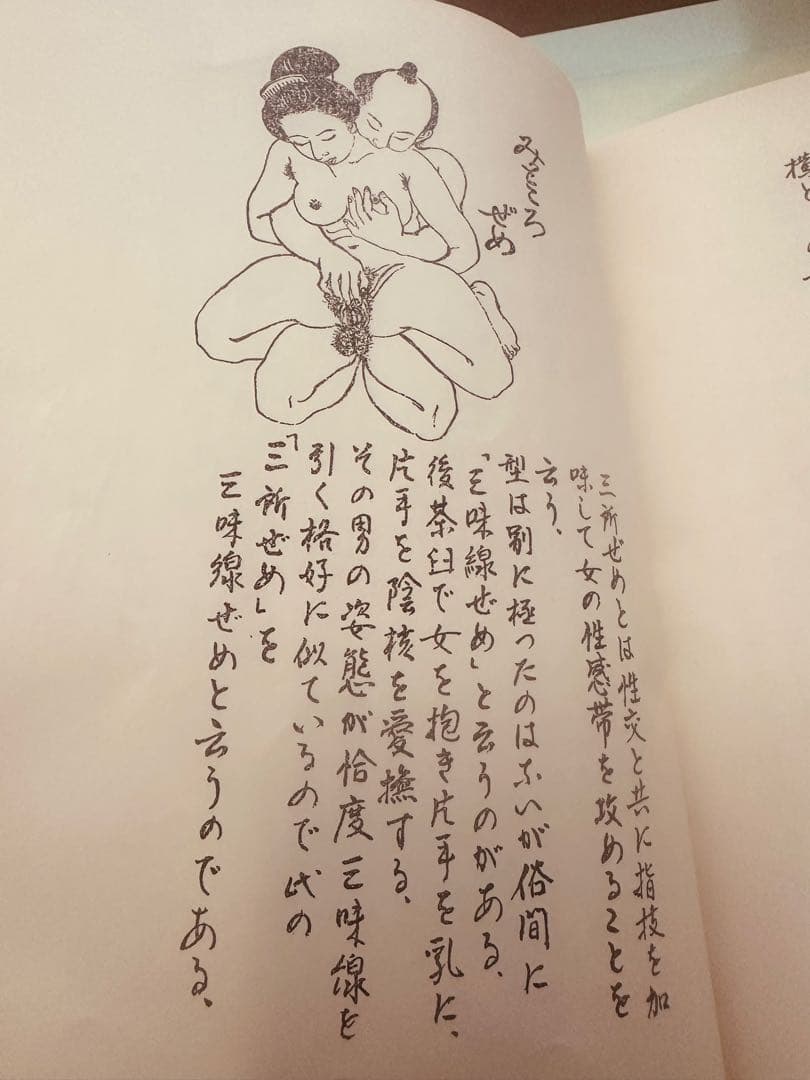 みところ
ぜめ
三所ぜめとは性交と共に指技を加
味して女の性感帯を攻めることを
云う、
型は別に極ったのはないが俗間に
「三味線ぜめ」と云うのがある、
後茶臼で女を抱き片手を乳に、
片手を陰核を愛撫する、
その男の姿態が恰度三味線を
引く格好に似ているので此の
「三所ぜめ」を
三味線ぜめと云うのである、